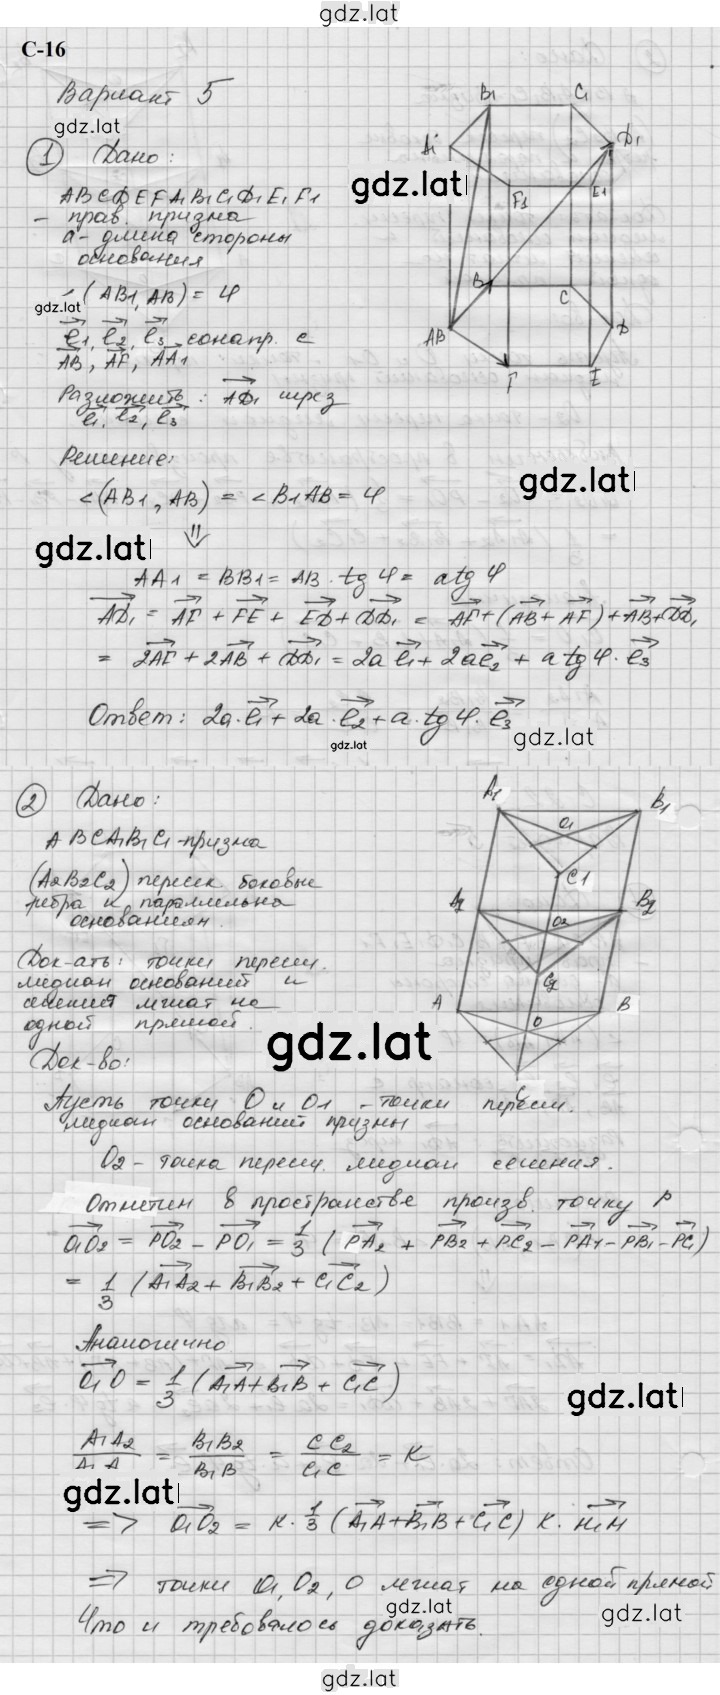 gdz.lat
С-16
Вариант 5
gdz.lat
1 Дано:
ABCDEFA1B1C1D1E1F1
- прав. призма
a - длина стороны
основания
∠(AB1, AB) = φ
gdz.lat
e1, e2, e3 сонапр. с
AB, AF, AA1
Разложить: AD1 через
e1, e2, e3
B1 C1
A1 D1
gdz.lat
F1 E1
B C
AB D
F E
Решение:
∠(AB1, AB) = ∠B1AB = φ
gdz.lat
gdz.lat
⇓
AA1 = BB1 = AB · tg φ = a tg φ
AD1 = AF + FE + ED + DD1 = AF + (AB + AF) + AB + DD1
= 2AF + 2AB + DD1 = 2a e1 + 2a e2 + a tg φ · e3
Ответ: 2a · e1 + 2a · e2 + a · tg φ · e3
gdz.lat
gdz.lat
2 Дано:
ABCA1B1C1 - призма
(A2B2C2) пересек боковые
ребра и параллельна
основаниям.
Док-ать: точки пересеч.
медиан оснований и
сечения лежат на
одной прямой.
A1 B1
O1
C1
A2 B2
O2
C2
A B
O
C
gdz.lat
Док-во:
Пусть точки O и O1 - точки пересеч.
медиан оснований призмы
O2 - точка пересеч. медиан сечения.
Отметим в пространстве произв. точку P
O1O2 = PO2 - PO1 = 1/3 (PA2 + PB2 + PC2 - PA1 - PB1 - PC1)
= 1/3 (A1A2 + B1B2 + C1C2)
Аналогично
O1O = 1/3 (A1A + B1B + C1C)
gdz.lat
A1A2/A1A = B1B2/B1B = CC2/C1C = K
gdz.lat
=> O1O2 = K · 1/3 (A1A + B1B + C1C) K · H1H
=> точки O1, O2, O лежат на одной прямой
gdz.lat
gdz.lat
Что и требовалось доказать.
gdz.lat